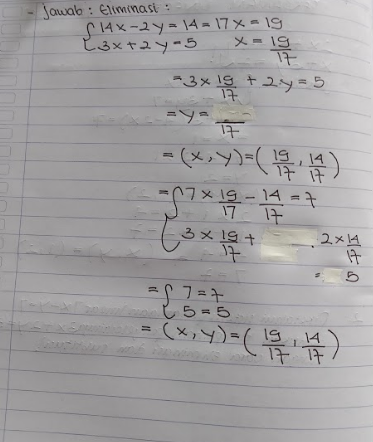 - Jawab : Eliminasi :
{14x - 2y = 14 = 17x = 19
{3x + 2y = 5 x = 19/17
= 3 x 19/17 + 2y = 5
= y = /17
= (x, y) = (19/17, 14/17)
= {7 x 19/17 - 14/17 = 7
{3 x 19/17 + . 2 x 14/17
= 5
= {7 = 7
{5 = 5
= (x, y) = (19/17, 14/17)